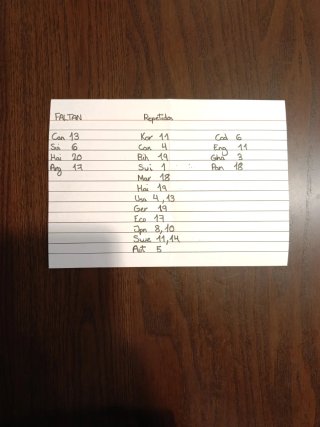 FALTAN
Can 13
Sui 6
Hai 20
Arg 17
Repetidos
Kor 11
Can 4
Bih 19
Sui 1
Mar 18
Hai 19
Usa 4,13
Ger 19
Eco 17
Jpn 8,10
Swe 11,14
Aut 5
Cod 6
Eng 11
Gha 3
Pan 18